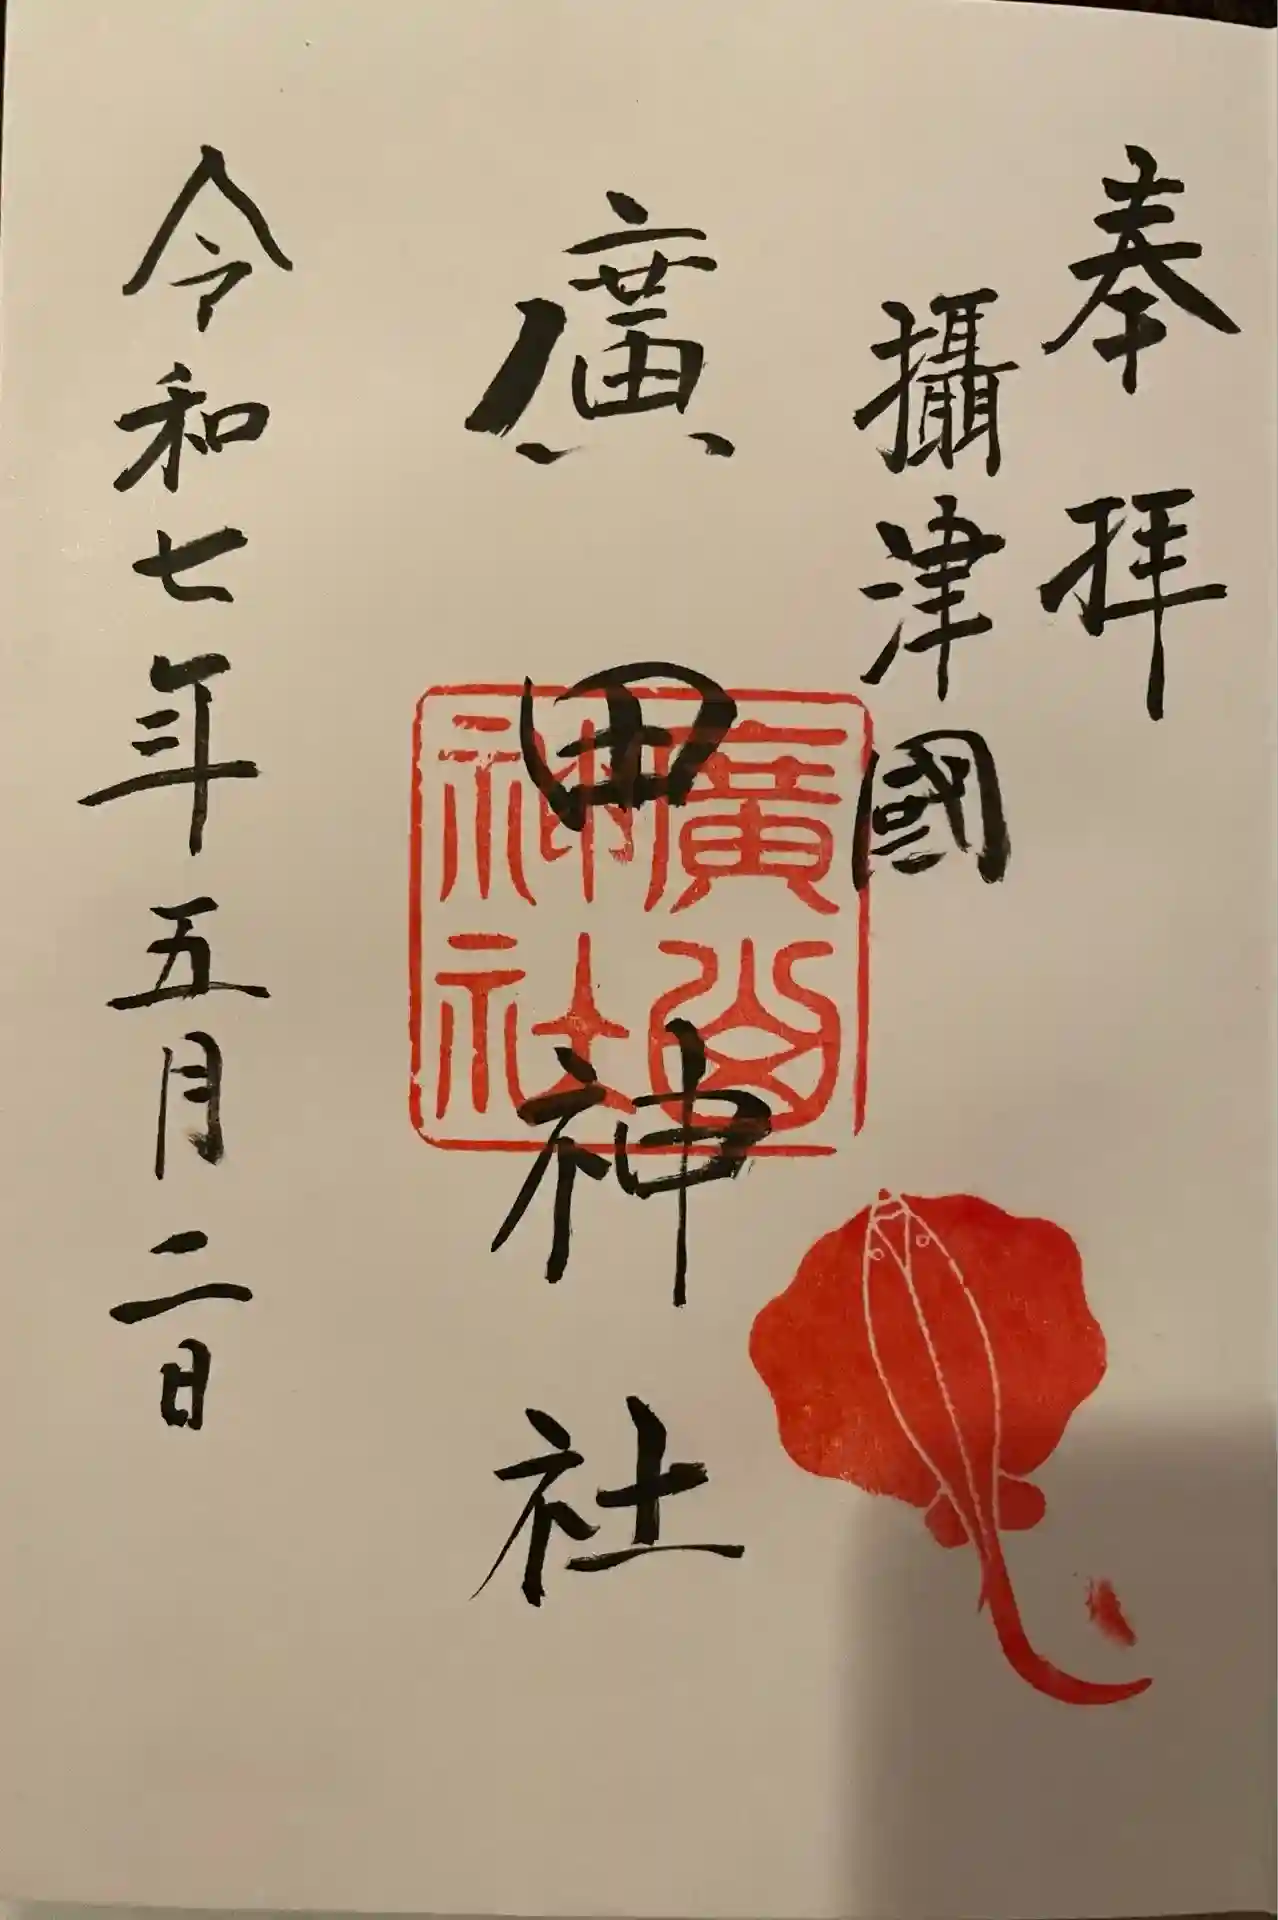 奉拝
攝津國
廣田神社
令和七年五月二日
廣
神社